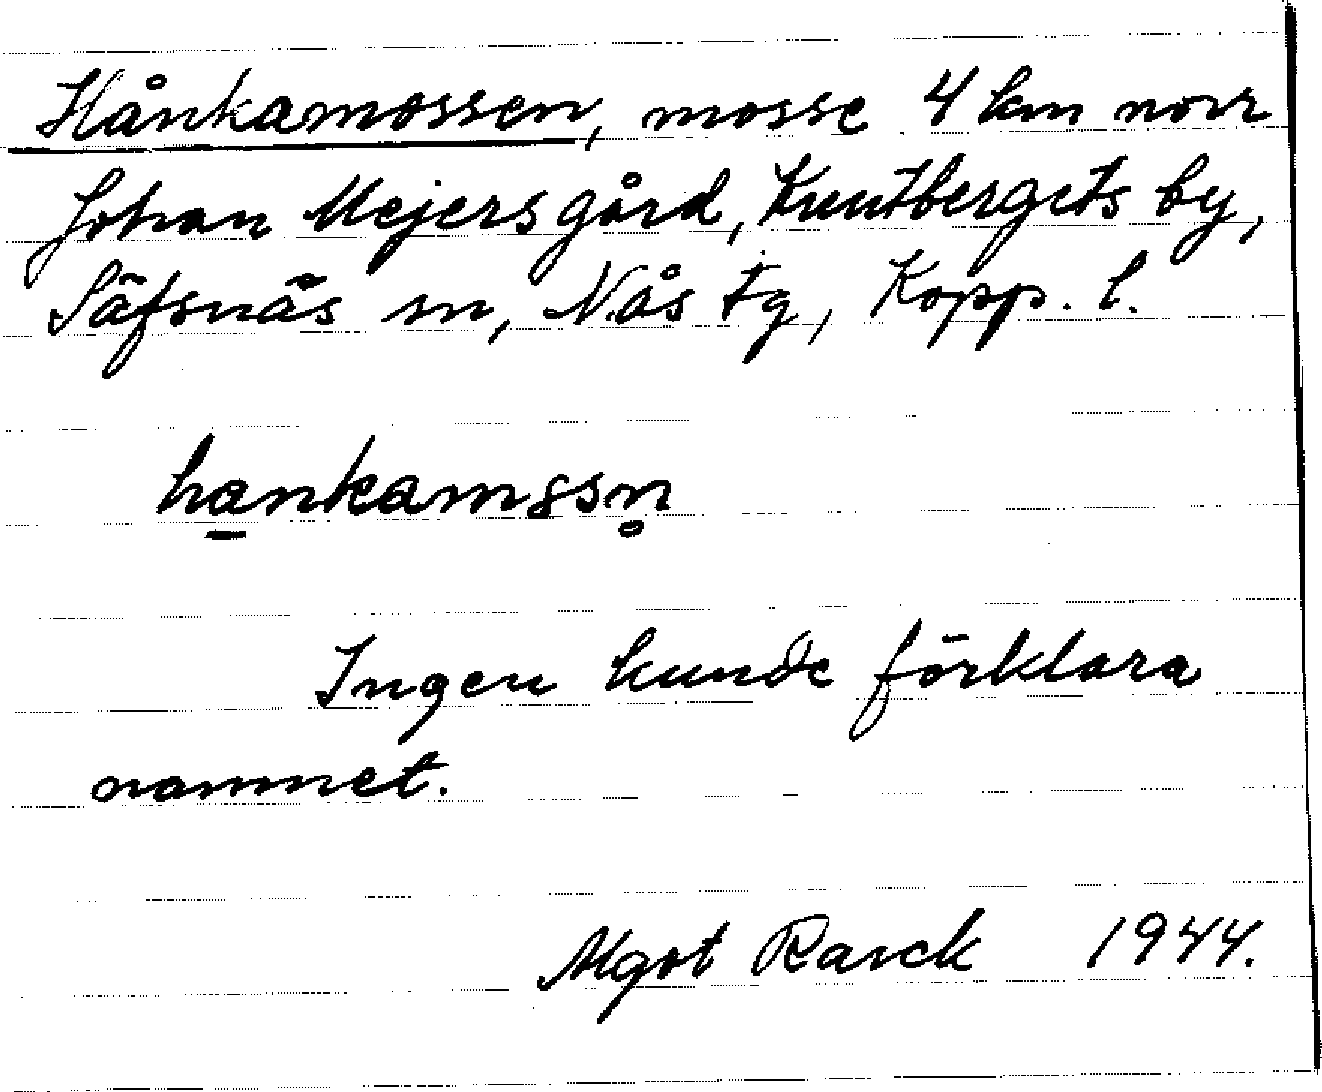 Hånkamossen, mosse 4 km norr
Johan Mejersgård, Knutbergets by,
Säfsnäs sn, Nås tg, Kopp. l.
hankamssn̥
Ingen kunde förklara
namnet.
Mgot Rarck 1944.